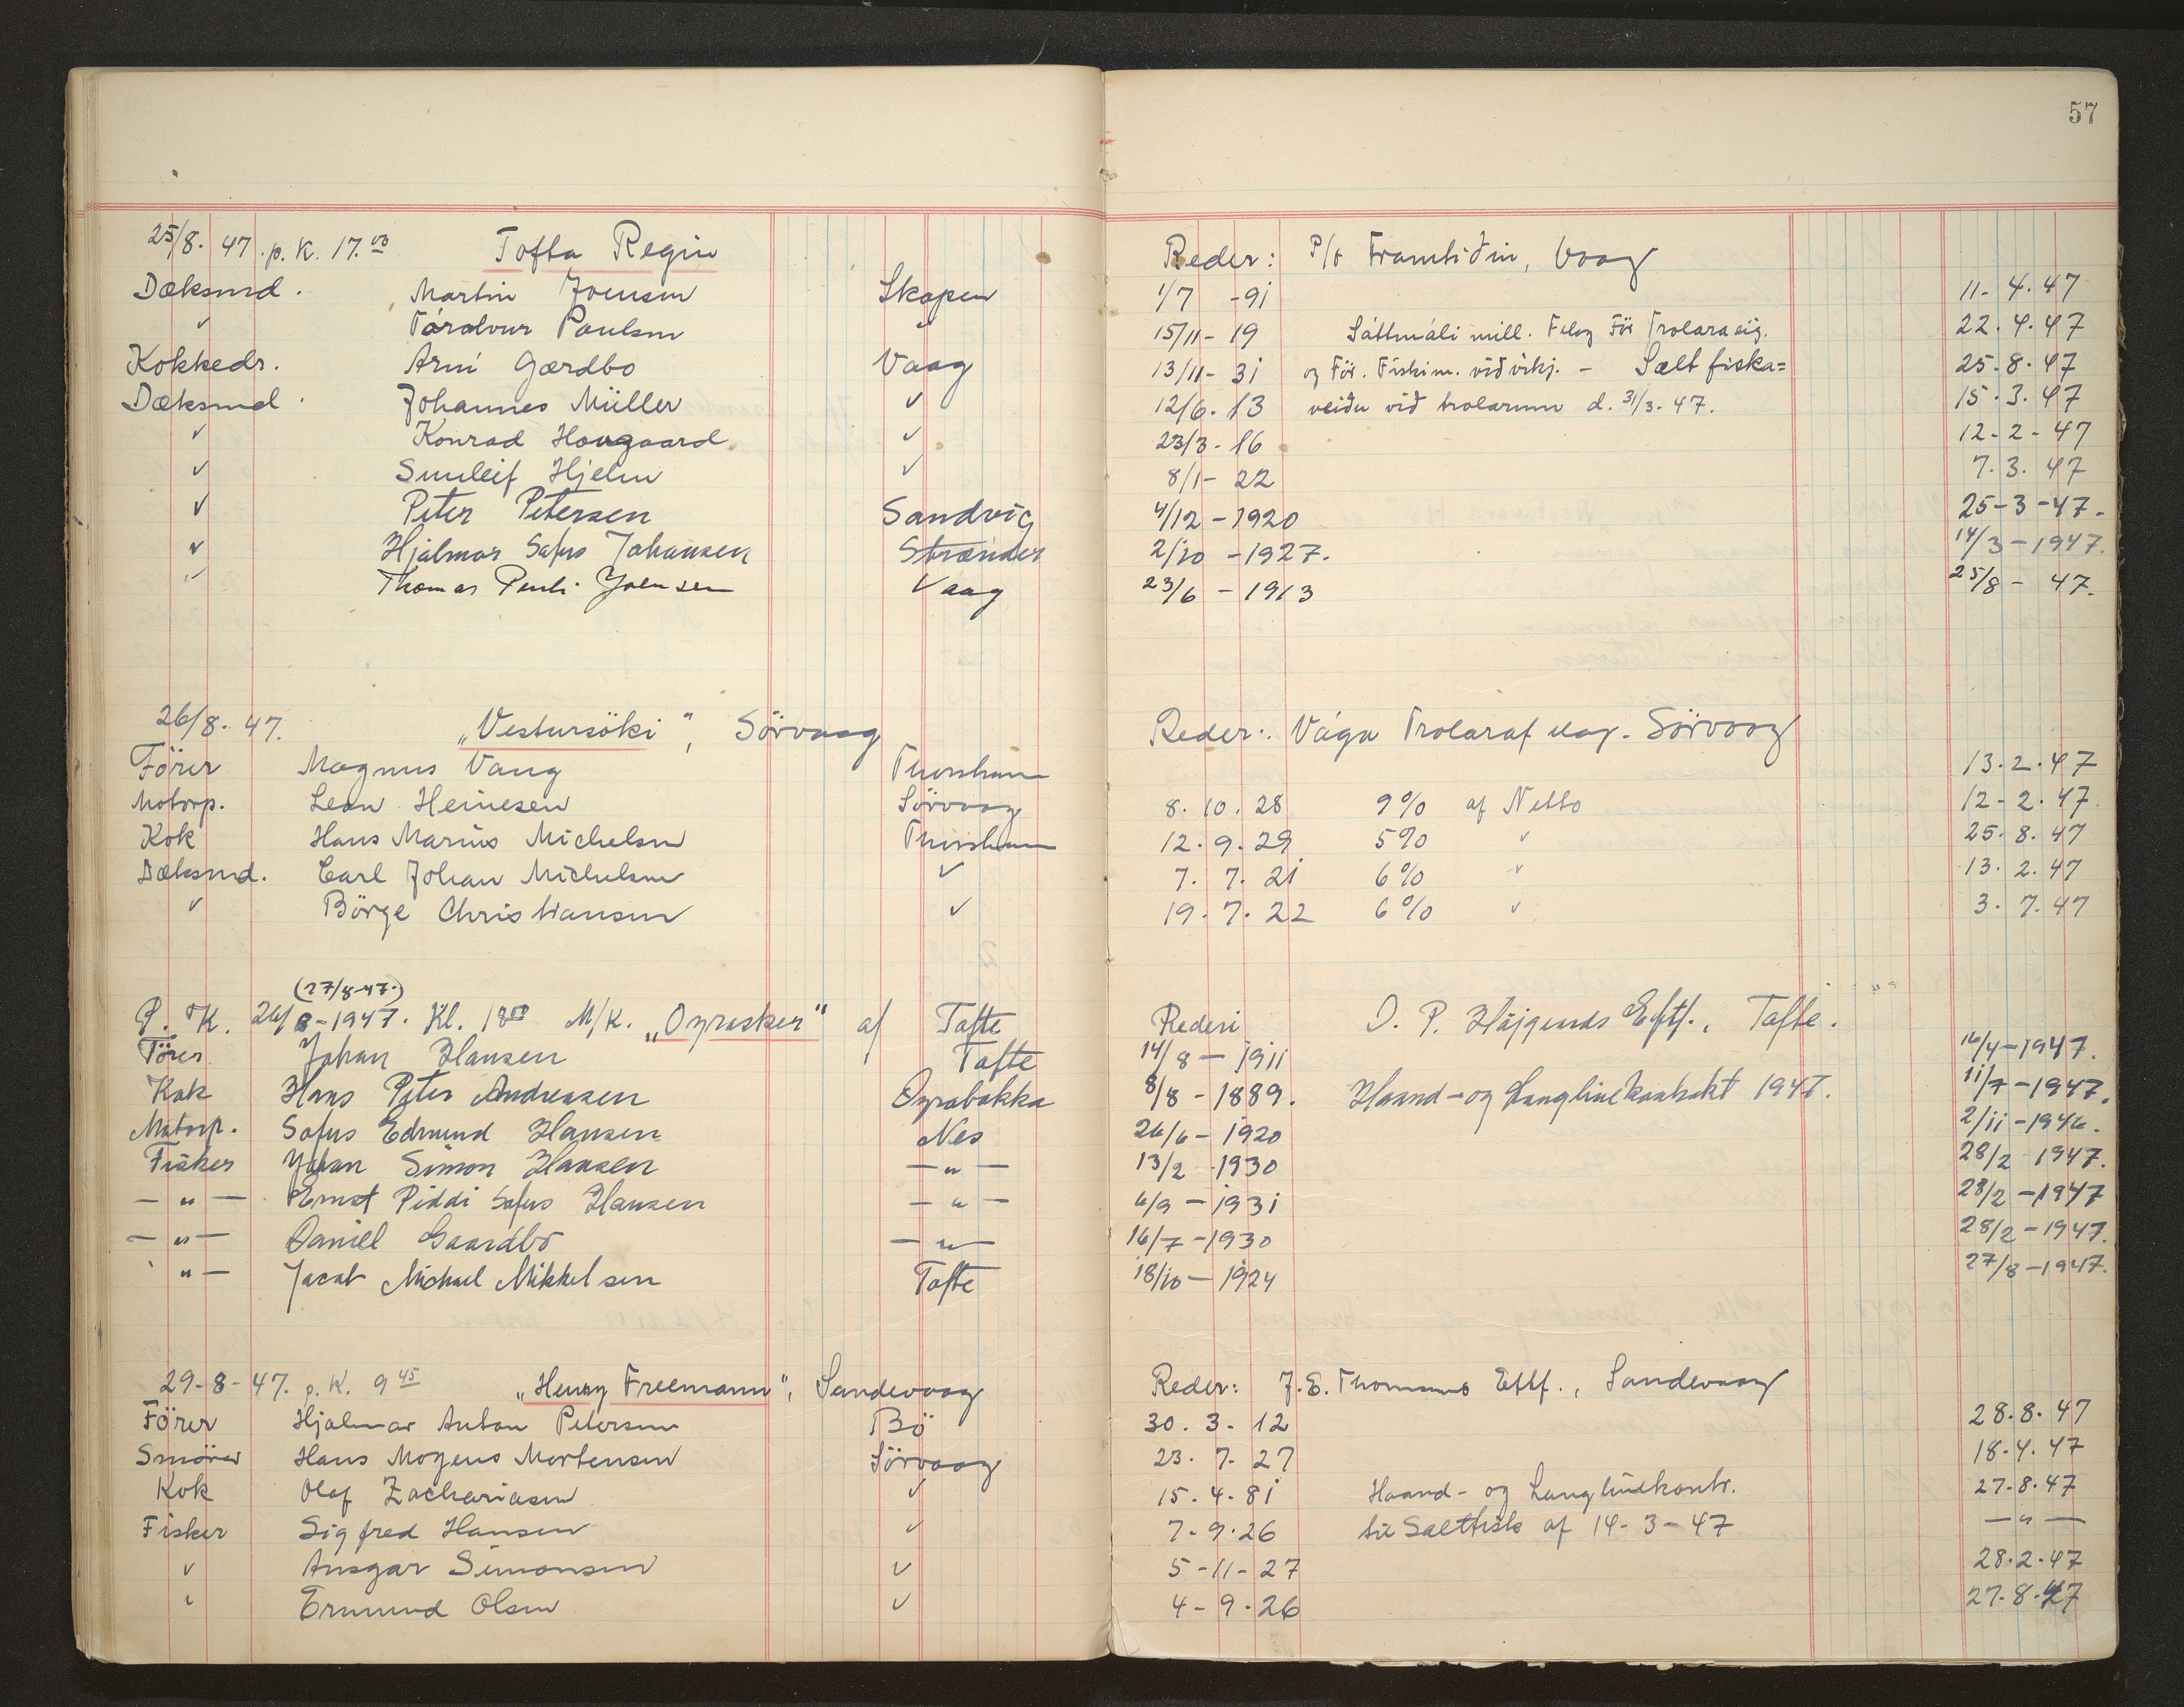 57
25/8. 47. p. K. 17.00 Tofta Regin Reder: P/f Framtiðin, Vaag
Dæksmd. Martin Joensen Skopen 1/7 - 91 11-4.47
✓ Tórálvur Poulsen ✓ 15/11 - 19 Sáttmáli mill. Felag För Trolaraeig. 22.4.47
Kokkedr. Arni Gærdbo Vaag 13/11 - 31 og För. Fiskim. viðvikj. - Salt fiska= 25.8.47
Dæksmd. Johannes Müller ✓ 12/6. 13 veiðu við trolarum d. 31/3. 47. 15.3.47
✓ Konrad Hougaard ✓ 23/3 - 16 12-2-47
✓ Sunleif Hjelm ✓ 8/1 - 22 7.3.47
✓ Peter Petersen Sandvig 4/12 - 1920 25-3-47.
✓ Hjálmar Sofus Johansen Strænder 2/10 - 1927. 14/3 - 1947.
✓ Thomas Pauli Joensen Vaag 23/6 - 1913 25/8 - 47.
26/8. 47. „Vestursöki“, Sörvaag Reder: Vága Trolarafelag. Sörvaag
Förer Magnus Vang Thorshavn 13.2.47
Motorp. Leon Heinesen Sörvaag 8. 10. 28 9% af Netto 12-2.47
Kok Hans Marius Michelsen Thorshavn 12. 9. 29 5% ✓ 25.8.47
Dæksmd. Carl Johan Michelsen ✓ 7. 7. 21 6% ✓ 13.2.47
✓ Börge Christiansen ✓ 19. 7. 22 6% ✓ 3.7.47
(27/8-47.)
P. K. 26/8-1947. Kl. 18 00 M/K. „Oyrasker“ af Tofte Rederi J. P. Højgaards Eftf., Tofte.
Förer Johan Hansen Tofte 14/8 - 1911 16/4-1947.
Kok Hans Peter Andreasen Oyrabakka 8/8 - 1889. Haand- og Langlinekontrakt 1947. 11/7-1947.
Motorp. Sofus Edmund Hansen Nes 26/6 - 1920 2/11-1946.
Fisker Johan Simon Hansen — „ — 13/2 - 1930 28/2 1947.
— „ — Ernst Piddi Sofus Hansen — „ — 6/9 - 1931 28/2-1947
— „ — Daniel Gaardbo — „ — 16/7 - 1930 28/2-1947.
„ — Jacob Michael Mikkelsen Tofte 18/10 - 1924 27/8-1947.
29-8-47. p. K. 9 45 „Henry Freemann“, Sandevaag Reder: J. E. Thomsens Eftf., Sandevaag
Förer Hjalmar Anton Petersen Bö 30. 3. 12 28.8.47
Smörer Hans Mogens Mortensen Sörvaag 23. 7. 27 18.4.47
Kok Olaf Zachariasen ✓ 15. 4. 81 Haand- og Langlinekontr. 27.8.47
Fisker Sigfred Hansen ✓ 7-9.26 til Saltfisk af 14-3-47 — „ —
✓ Ansgar Simonsen ✓ 5-11-27 28.2.47
✓ Ermund Olsen ✓ 4-9.26 27.8.47